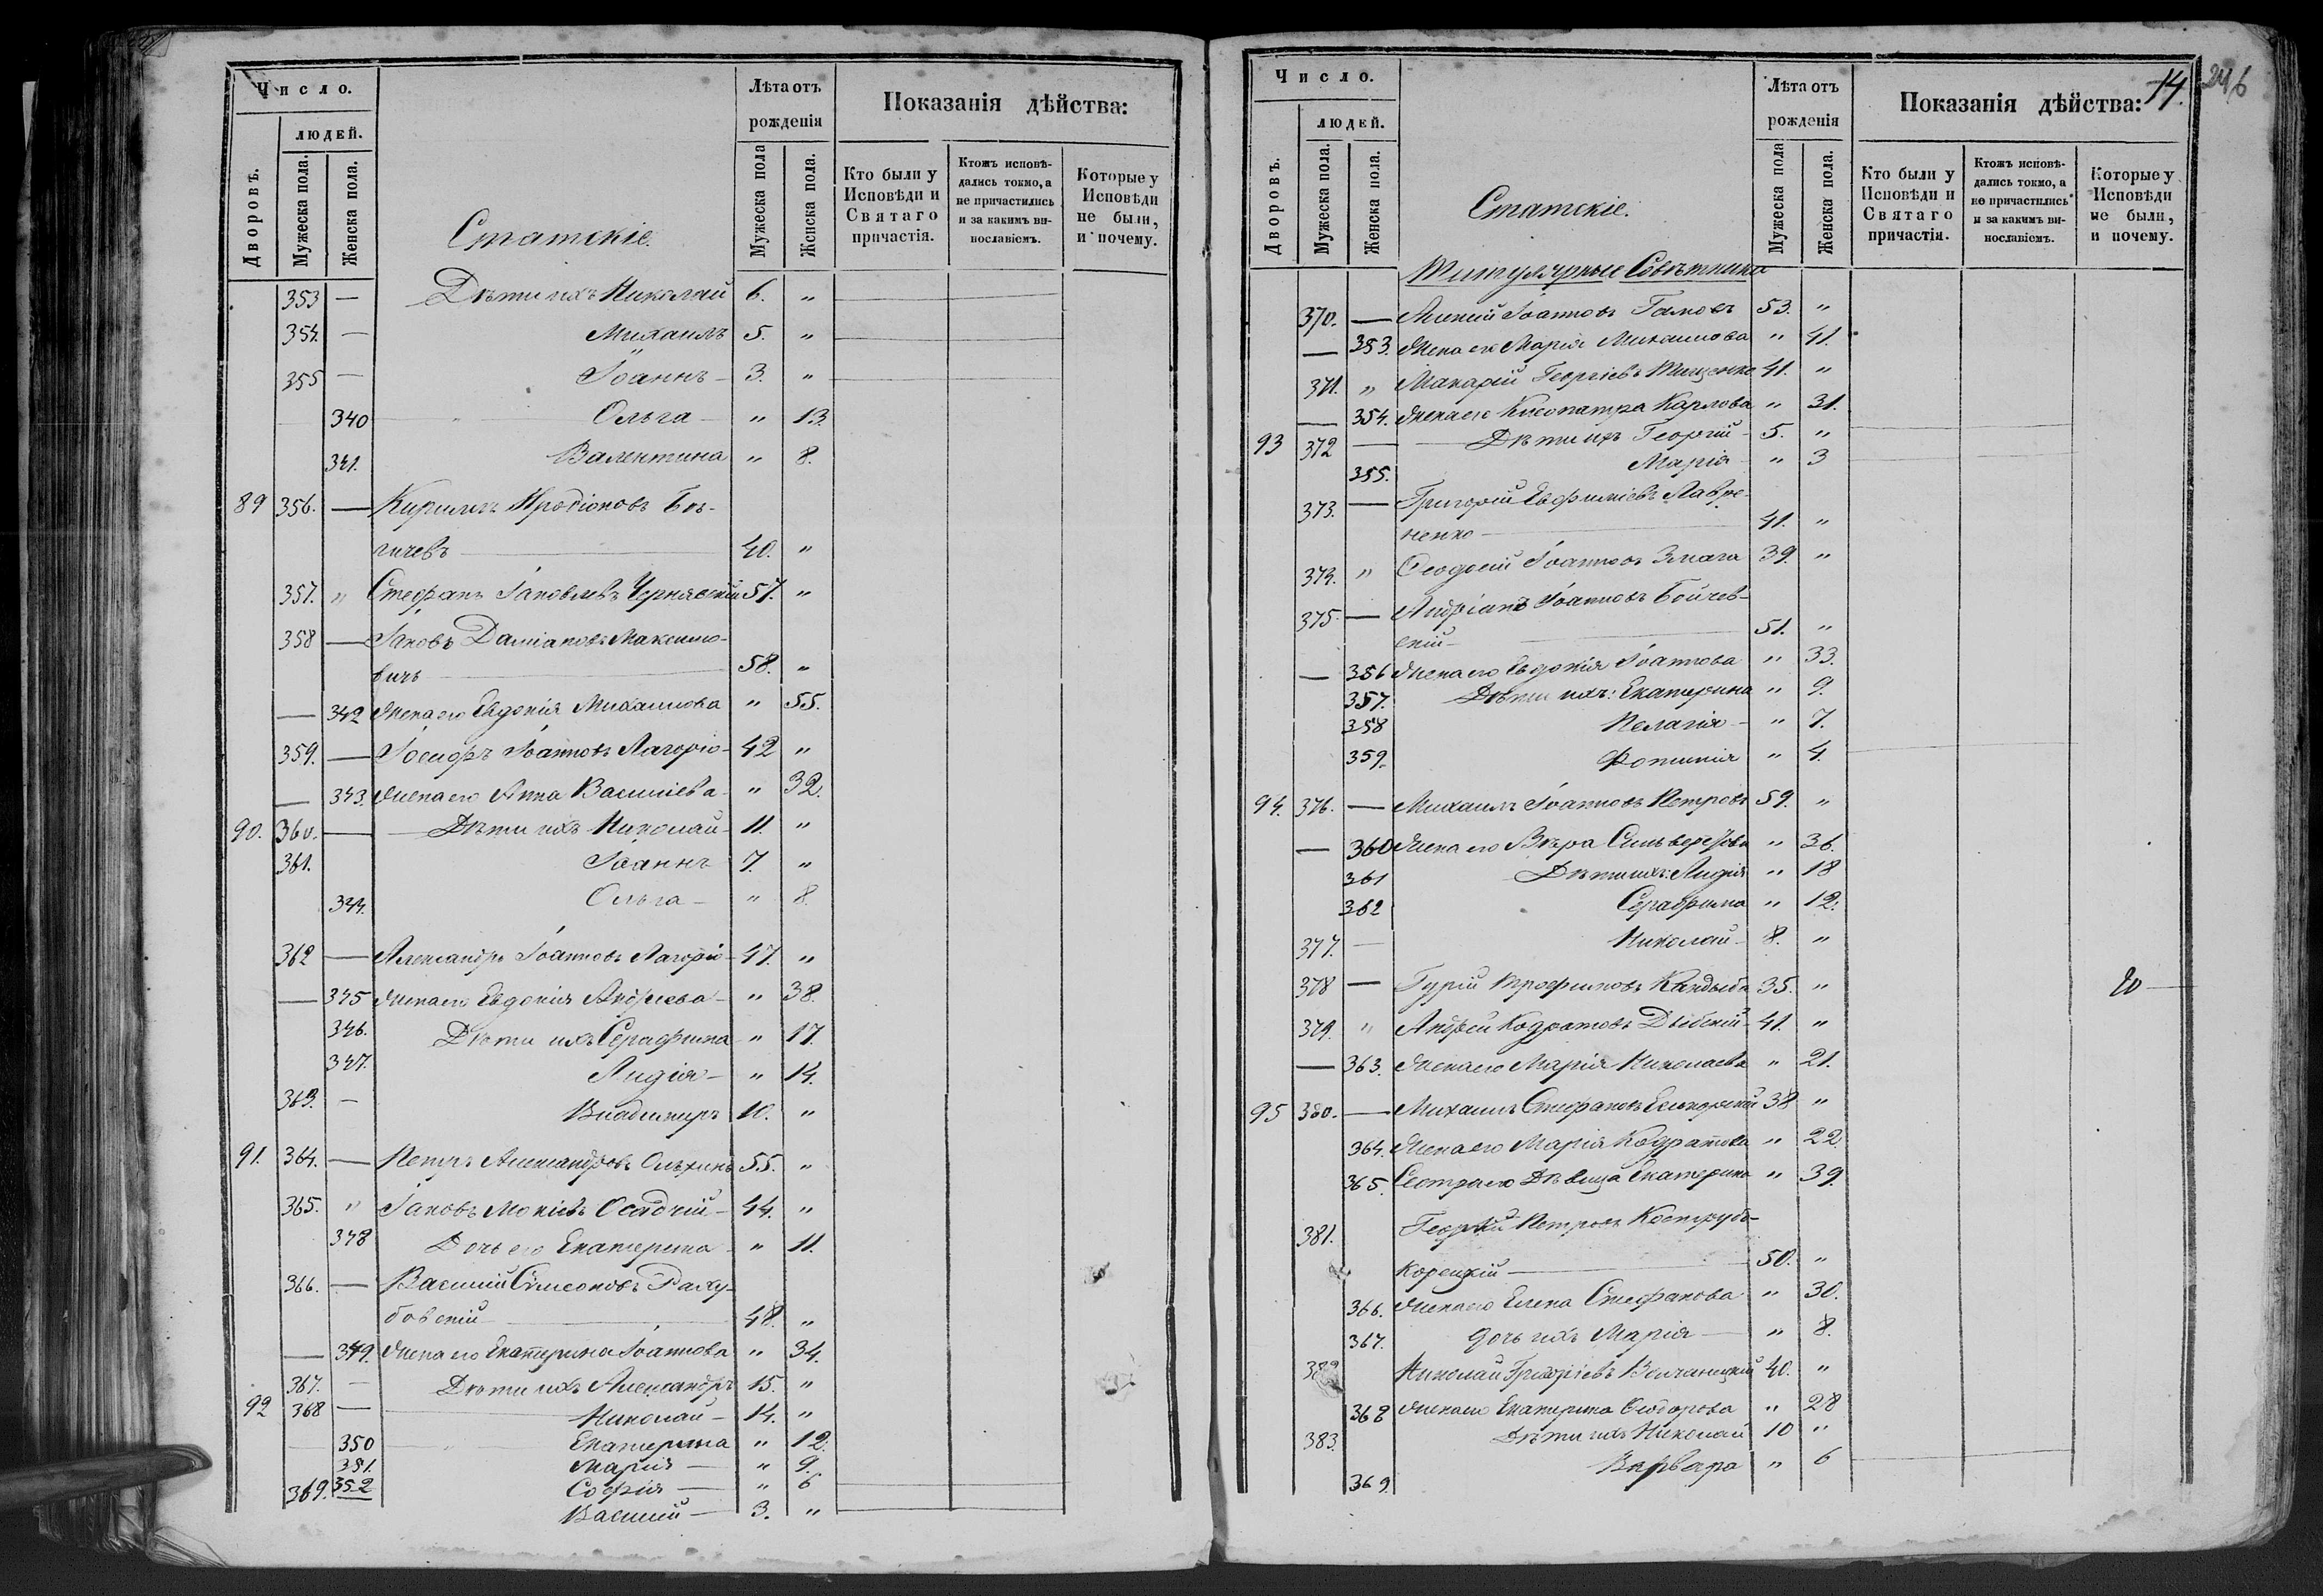 Число.
людей.
Дворовъ.
Мужеска пола.
Женска пола.
Статскіе.
Лѣта отъ рожденія
Мужеска пола
Женска пола.
Показанія дѣйства:
Кто были у Исповѣди и Святаго причастія.
Ктожъ исповѣдались токмо, а не причастились и за какимъ винославіемъ.
Которые у Исповѣди не были, и почему.
353 — Дѣти ихъ Николай 6. "
354. — Михаилъ 5. "
355 — Іоаннъ 3. "
340 Ольга " 13.
341. Валентина " 8.
89 356. — Кириллъ Иродіоновъ Бѣ-
гичевъ 40. "
357. " Стефанъ Іаковлевъ Чернявскій 57. "
358 — Іаковъ Даміановъ Максимо-
вичъ 58. "
— 342 Жена его Евдокія Михаилова " 55.
359. — Іосифъ Іоанновъ Лагоріо 42 "
— 343. Жена его Анна Васильева " 32.
90. 360. — Дѣти ихъ Николай 11. "
361. Іоаннъ 7. "
344. Ольга " 8.
362 — Александръ Іоанновъ Лагоріо 47. "
— 345 Жена его Евдокія Андреева " 38.
346. Дѣти ихъ Серафима " 17.
347. Лидія " 14.
363. — Владимиръ 10. "
91. 364. — Петръ Александровъ Олехинъ 55. "
365. " Іаковъ Мокіевъ Осадчій 44. "
348 Дочь его Екатерина " 11.
366. — Василій Симеоновъ Раху-
бовскій 48. "
— 349. Жена его Екатерина Іоаннова " 34.
367. — Дѣти ихъ Александръ 15. "
92 368 — Николай 14. "
350 Екатерина " 12.
351. Марія " 9.
369. 352 Софія " 6
Василій 3. "
14.
246
Число.
людей.
Дворовъ.
Мужеска пола.
Женска пола.
Статскіе.
Лѣта отъ рожденія
Мужеска пола
Женска пола.
Показанія дѣйства:
Кто были у Исповѣди и Святаго причастія.
Ктожъ исповѣдались токмо, а не причастились и за какимъ винославіемъ.
Которые у Исповѣди не были, и почему.
Титулярные Совѣтники
370. — Іоанновъ 53. "
— 353. Жена его Марія Михаилова " 41.
371. " Макарій Георгіевъ Тищенко 41. "
— 354. Жена его Клеопатра Карлова " 31.
93 372 — Дѣти ихъ Георгій 5. "
355. Марія " 3
373. — Григорій Евфиміевъ Лавре-
ненко 41. "
374. " Ѳеодосій Іоанновъ Змага 39. "
375. — Андріанъ Іоанновъ Бойчев-
скій 51. "
— 356 Жена его Евдокія Іоаннова " 33.
357. Дѣти ихъ: Екатерина " 9.
358 Пелагія " 7.
359. Фотинія " 4.
94. 376. — Михаилъ Іоанновъ Петровъ 59. "
— 360 Жена его Вѣра Сильвестрова " 36.
361 Дѣти ихъ: Лидія " 18
362 Серафима " 12.
377. — Николай 8. "
378 — Гурій Трофимовъ Кандыба 35. " 20
379. " Андрей Кодратовъ Дыбскій 41. "
— 363. Жена его Марія Николаева " 21.
95 380. — Михаилъ Стефановъ 38 "
364. Жена его Марія Кодратова " 22.
365. Сестра его Дѣвица Екатерина " 39.
381. Георгій Петровъ Кострубо-
Корецкій 50. "
366. Жена его Елена Стефанова " 30.
367. Дочь ихъ Марія " 8.
382 Николай Григоріевъ Волчанецкій 40. "
368 Жена его Екатерина Ѳеодорова " 28
383. Дѣти ихъ Николай 10 "
369. Варвара " 6